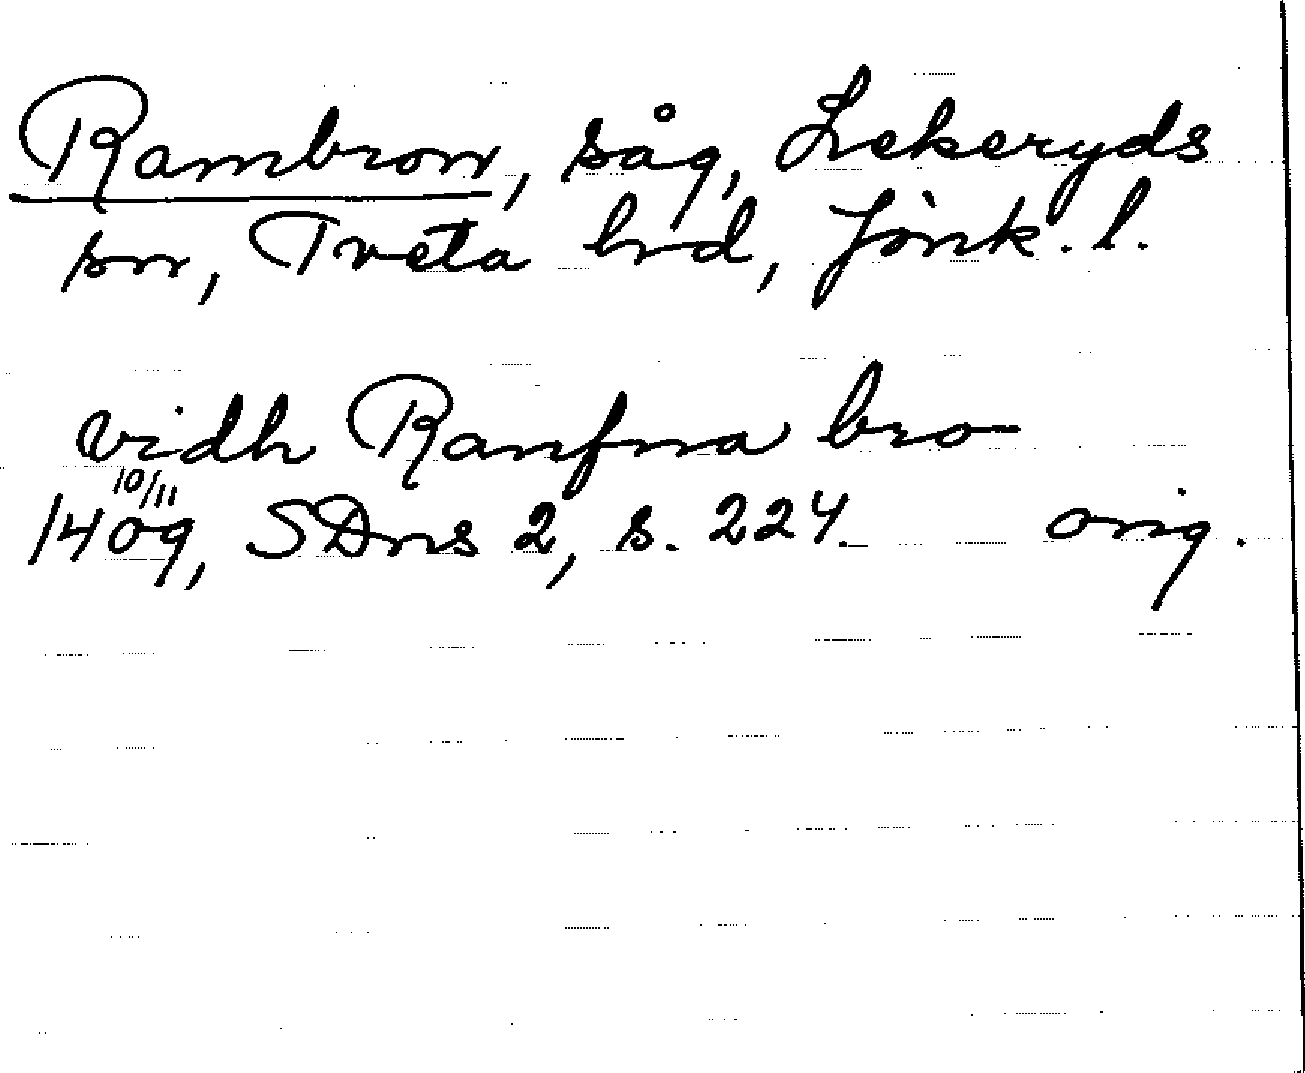 Rambron, såg, Lekeryds
sn, Tveta hd, Jönk. l.
vidh Ranfna bro
10/11
1409, SDns 2, s. 224. orig.